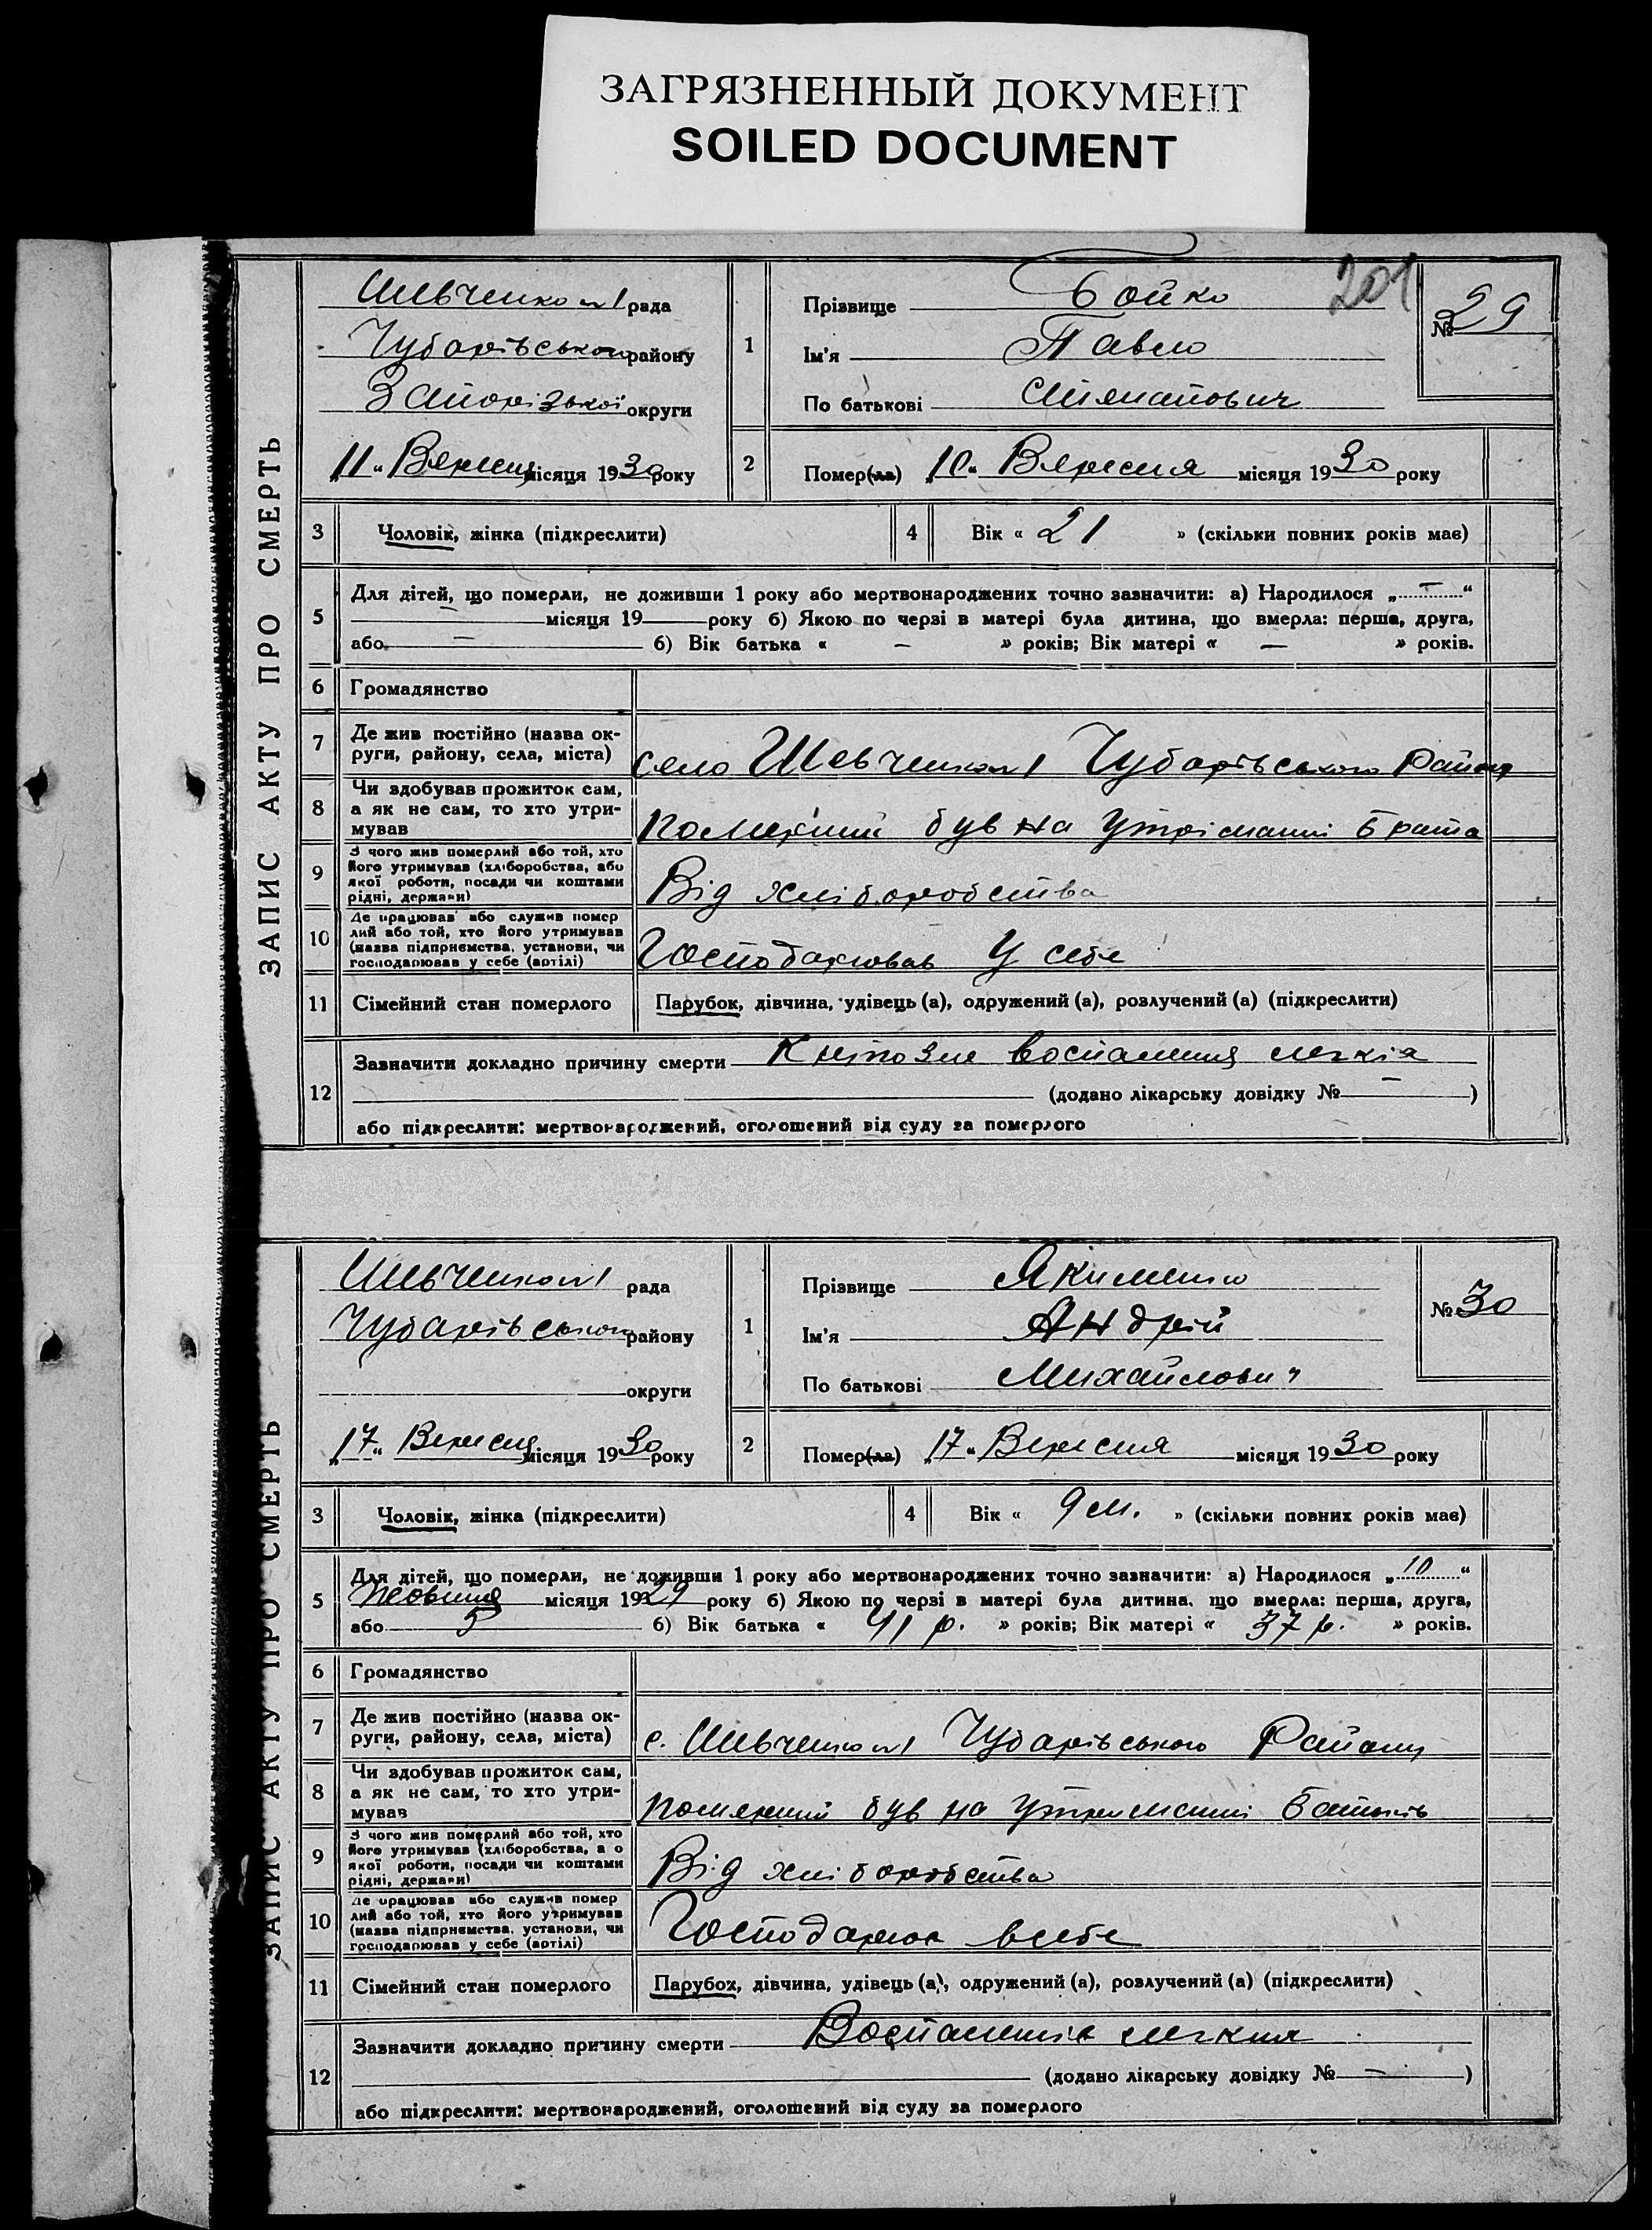 ЗАГРЯЗНЕННЫЙ ДОКУМЕНТ
SOILED DOCUMENT
201
ЗАПИС АКТУ ПРО СМЕРТЬ
Шевченко №1 рада
Чубарівського району
Запорізької округи
„11“ Вересня місяця 1930 року
1
Прізвище Бойко
Ім'я Павло
По батькові
№ 29
2
Помер(ла) „10“ Вересня місяця 1930 року
3 Чоловік, жінка (підкреслити)
4 Вік « 21 » (скільки повних років має)
5 Для дітей, що померли, не доживши 1 року або мертвонароджених точно зазначити: а) Народилося „—“
— місяця 19 року б) Якою по черзі в матері була дитина, що вмерла: перша, друга,
або — б) Вік батька « — » років; Вік матері « — » років.
6 Громадянство
7 Де жив постійно (назва ок-
руги, району, села, міста) село Шевченко №1 Чубарівського Району
8 Чи здобував прожиток сам,
а як не сам, то хто утри-
мував був на Утріманні Брата
9 З чого жив померлий або той, хто
його утримував (хліборобства, або
якої роботи, посади чи коштами
рідні, держави) Від хліборобства
10 Де працював або служив помер
лий або той, хто його утримував
(назва підприємства, установи, чи
господарював у себе (артілі) Господарював У себе
11 Сімейний стан померлого Парубок, дівчина, удівець (а), одружений (а), розлучений (а) (підкреслити)
12 Зазначити докладно причину смерти воспаления легкія
(додано лікарську довідку № — )
або підкреслити: мертвонароджений, оголошений від суду за померлого
ЗАПИС АКТУ ПРО СМЕРТЬ
Шевченко №1 рада
Чубарівського району
округи
„17“ Вересня місяця 1930 року
1
Прізвище Якименко
Ім'я Андрій
По батькові Михайлович
№ 30
2
Помер(ла) „17“ Вересня місяця 1930 року
3 Чоловік, жінка (підкреслити)
4 Вік « 9 м. » (скільки повних років має)
5 Для дітей, що померли, не доживши 1 року або мертвонароджених точно зазначити: а) Народилося „10“
місяця 1929 року б) Якою по черзі в матері була дитина, що вмерла: перша, друга,
або 5 б) Вік батька « 41 р. » років; Вік матері « 37 р. » років.
6 Громадянство
7 Де жив постійно (назва ок-
руги, району, села, міста) с. Шевченко №1 Чубарівського Району
8 Чи здобував прожиток сам,
а як не сам, то хто утри-
мував був на Утриманні Батьків
9 З чого жив померлий або той, хто
його утримував (хліборобства, а о
якої роботи, посади чи коштами
рідні, держави) Від хліборобства
10 Де працював або служив помер
лий або той, хто його утримував
(назва підприємства, установи, чи
господарював у себе (артілі) вsебе
11 Сімейний стан померлого Парубок, дівчина, удівець (а), одружений (а), розлучений (а) (підкреслити)
12 Зазначити докладно причину смерти легких
(додано лікарську довідку № — )
або підкреслити: мертвонароджений, оголошений від суду за померлого